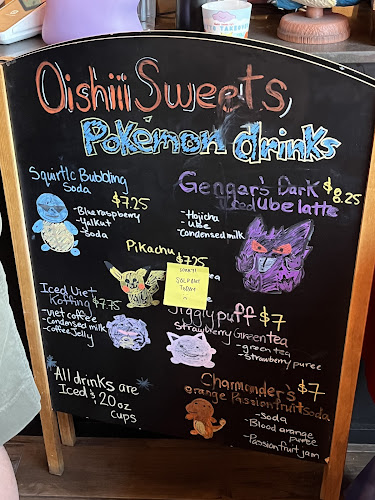 Oishiii Sweets
Pokémon drinks
Squirtle Bubbling
Soda
$7.25
- Blue raspberry
- Yakult
- Soda
Gengar's Dark $8.25
Iced Ube latte
- Hojicha
- Ube
- Condensed milk
Pikachu
$7.25
SORRY!
SOLD OUT
TODAY
Iced Viet
Koffing $7.75
- Viet coffee
- Condensed milk
- Coffee Jelly
Jigglypuff $7
Strawberry Green tea
- green tea
- strawberry puree
All drinks are
Iced & 20 oz
cups
Charmander's $7
Orange Passionfruit Soda
- Soda
- Blood orange
puree
- Passionfruit jam